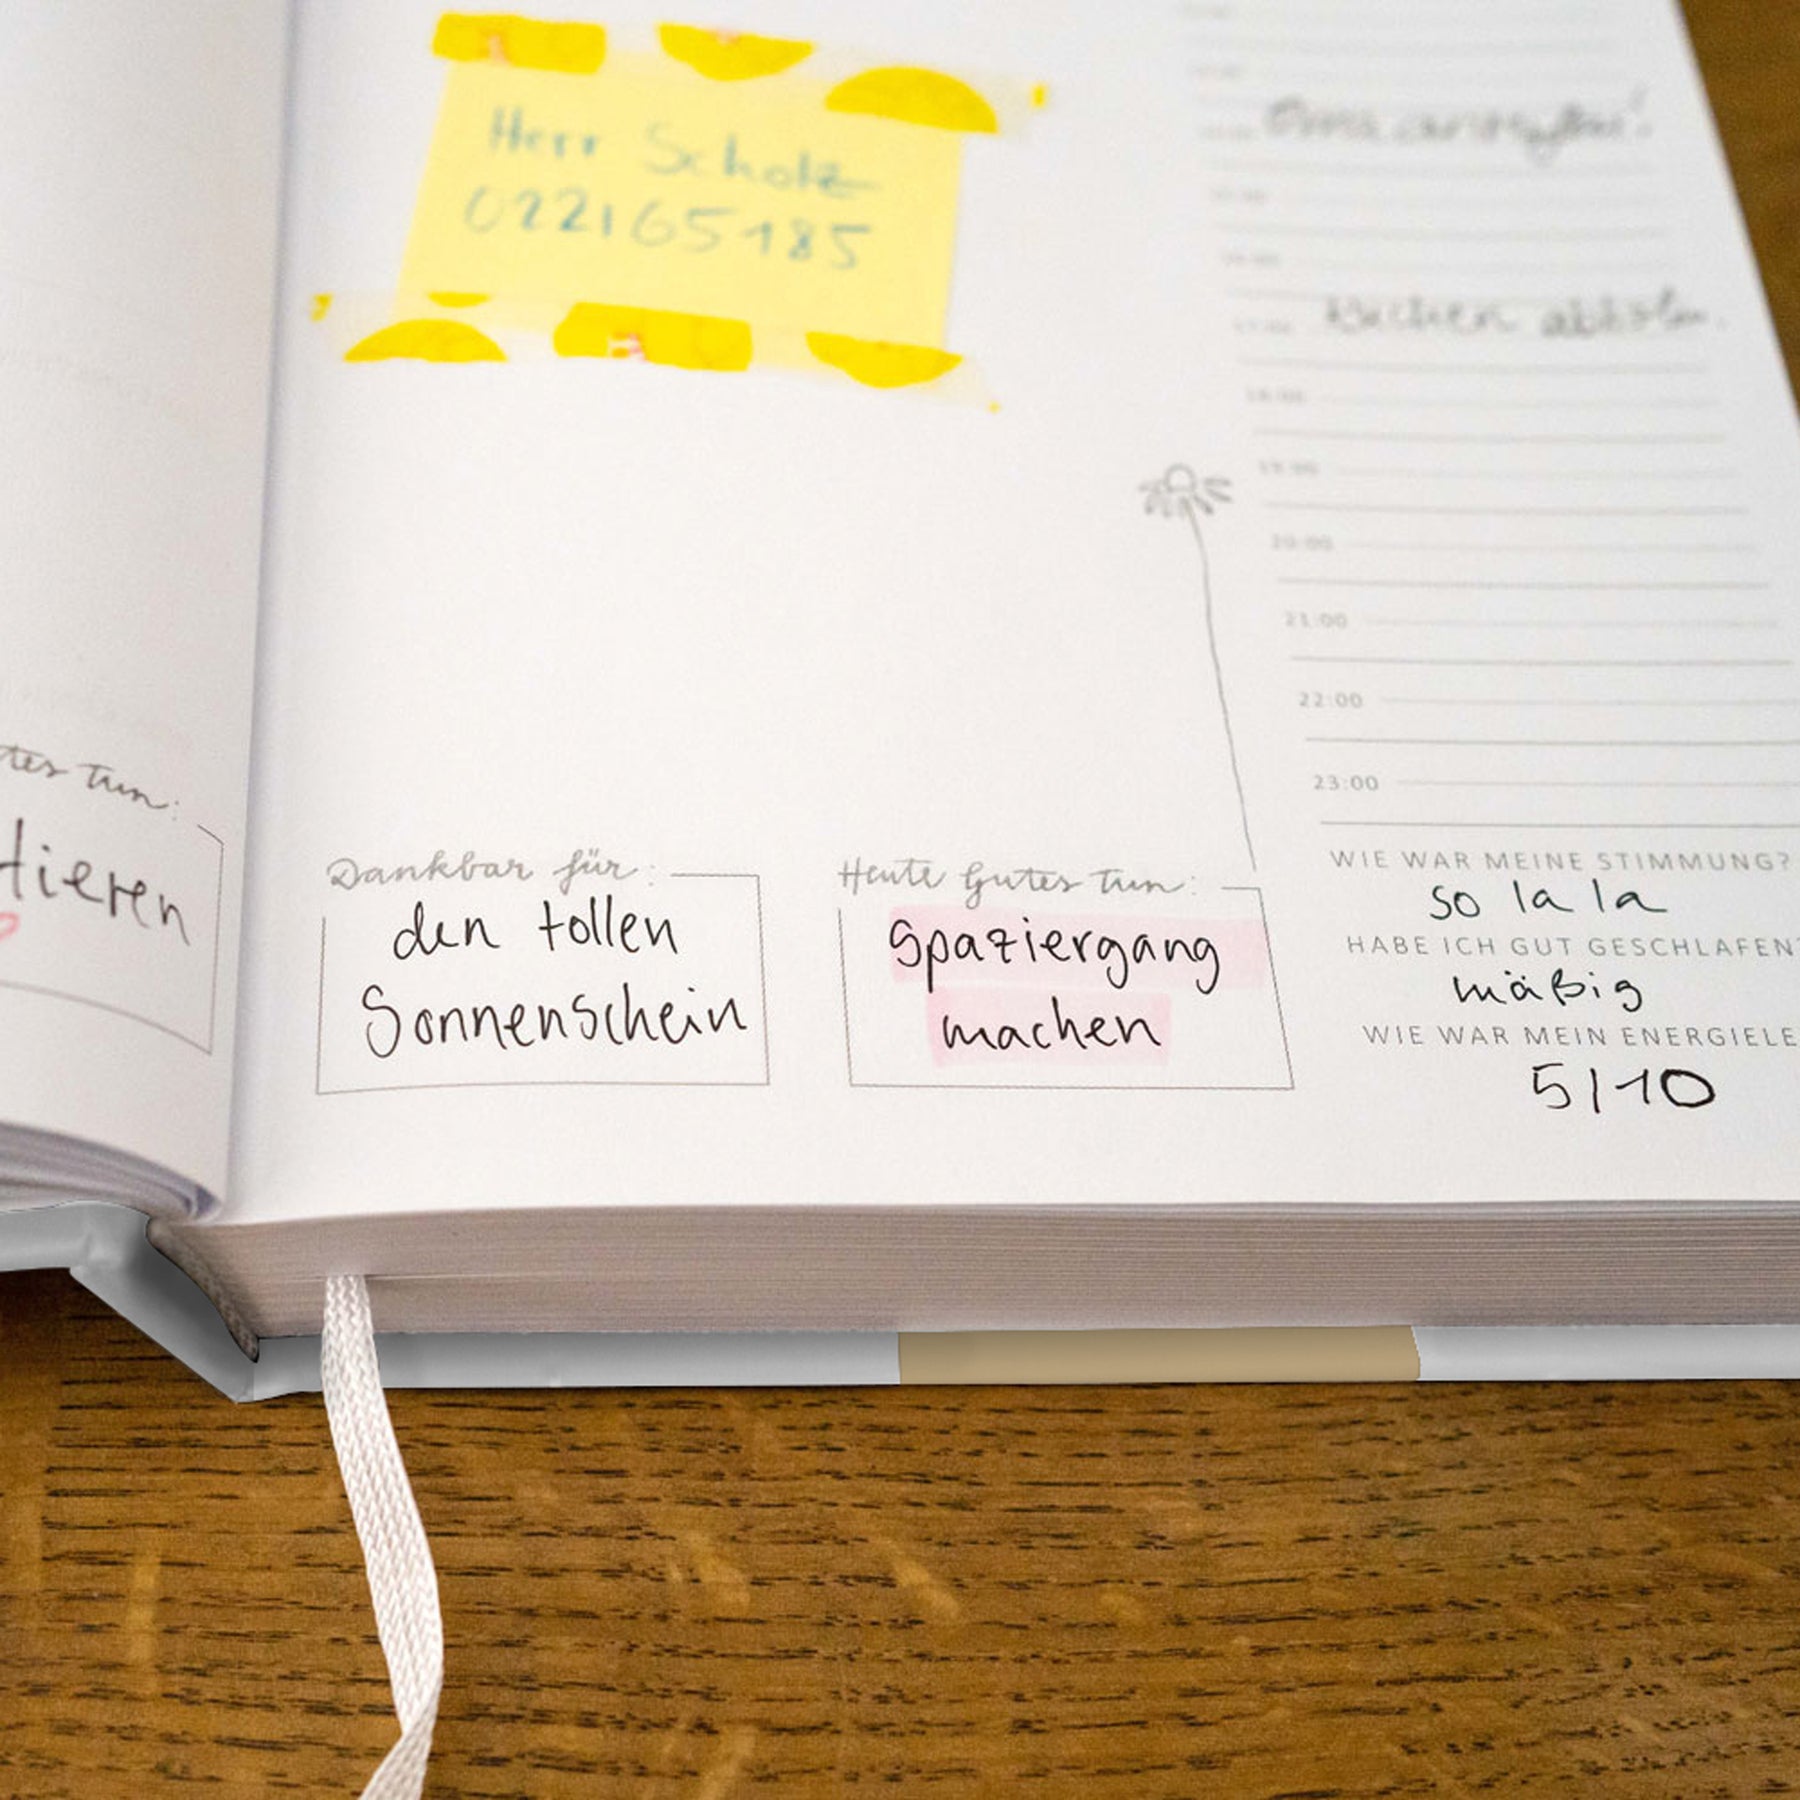 Herr Scholz
022165185
Oma anrufen!
Kuchen abholen.
18:00
19:00
20:00
21:00
22:00
23:00
Tun:
Dankbar für:
den tollen
Sonnenschein
Heute Gutes Tun:
Spaziergang
machen
WIE WAR MEINE STIMMUNG?
so la la
HABE ICH GUT GESCHLAFEN?
mäßig
WIE WAR MEIN ENERGIELE
5/10